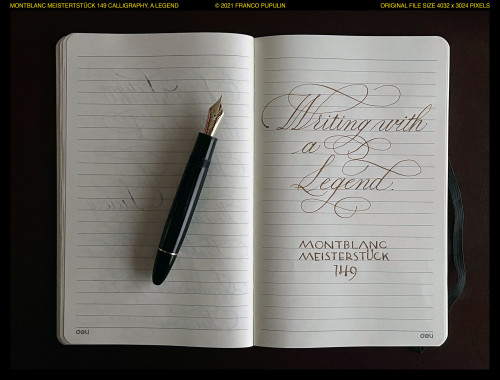 MONTBLANC MEISTERSTÜCK 149 CALLIGRAPHY, A LEGEND
© 2021 FRANCO PUPULIN
ORIGINAL FILE SIZE 4032 x 3024 PIXELS
Writing with
a
Legend.
MONTBLANC
MEISTERSTÜCK
149
deli
deli